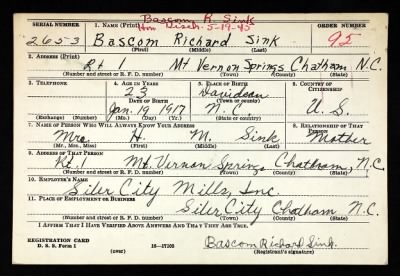 Bascom R. Sink
SERIAL NUMBER 1. NAME (Print) Hon Disch. 5-19-45 ORDER NUMBER
2653 Bascom Richard Sink 95
(First) (Middle) (Last)
2. ADDRESS (Print)
Rt 1 Mt Vernon Springs Chatham N.C.
(Number and street or R. F. D. number) (Town) (County) (State)
3. TELEPHONE 4. AGE IN YEARS 5. PLACE OF BIRTH 6. COUNTRY OF CITIZENSHIP
23 Davidson
DATE OF BIRTH (Town or county)
Jan. 19 1917 N.C. U.S.
(Exchange) (Number) (Mo.) (Day) (Yr.) (State or country)
7. NAME OF PERSON WHO WILL ALWAYS KNOW YOUR ADDRESS 8. RELATIONSHIP OF THAT PERSON
Mrs. H. M. Sink Mother
(Mr., Mrs., Miss) (First) (Middle) (Last)
9. ADDRESS OF THAT PERSON
Rt. 1 Mt. Vernon Springs Chatham, N.C.
(Number and street or R. F. D. number) (Town) (County) (State)
10. EMPLOYER'S NAME
Siler City Mills, Inc.
11. PLACE OF EMPLOYMENT OR BUSINESS
Siler City Chatham N.C.
(Number and street or R. F. D. number) (Town) (County) (State)
I AFFIRM THAT I HAVE VERIFIED ABOVE ANSWERS AND THAT THEY ARE TRUE.
REGISTRATION CARD
D. S. S. Form 1 (over) 16-17105 Bascom Richard Sink.
(Registrant's signature)